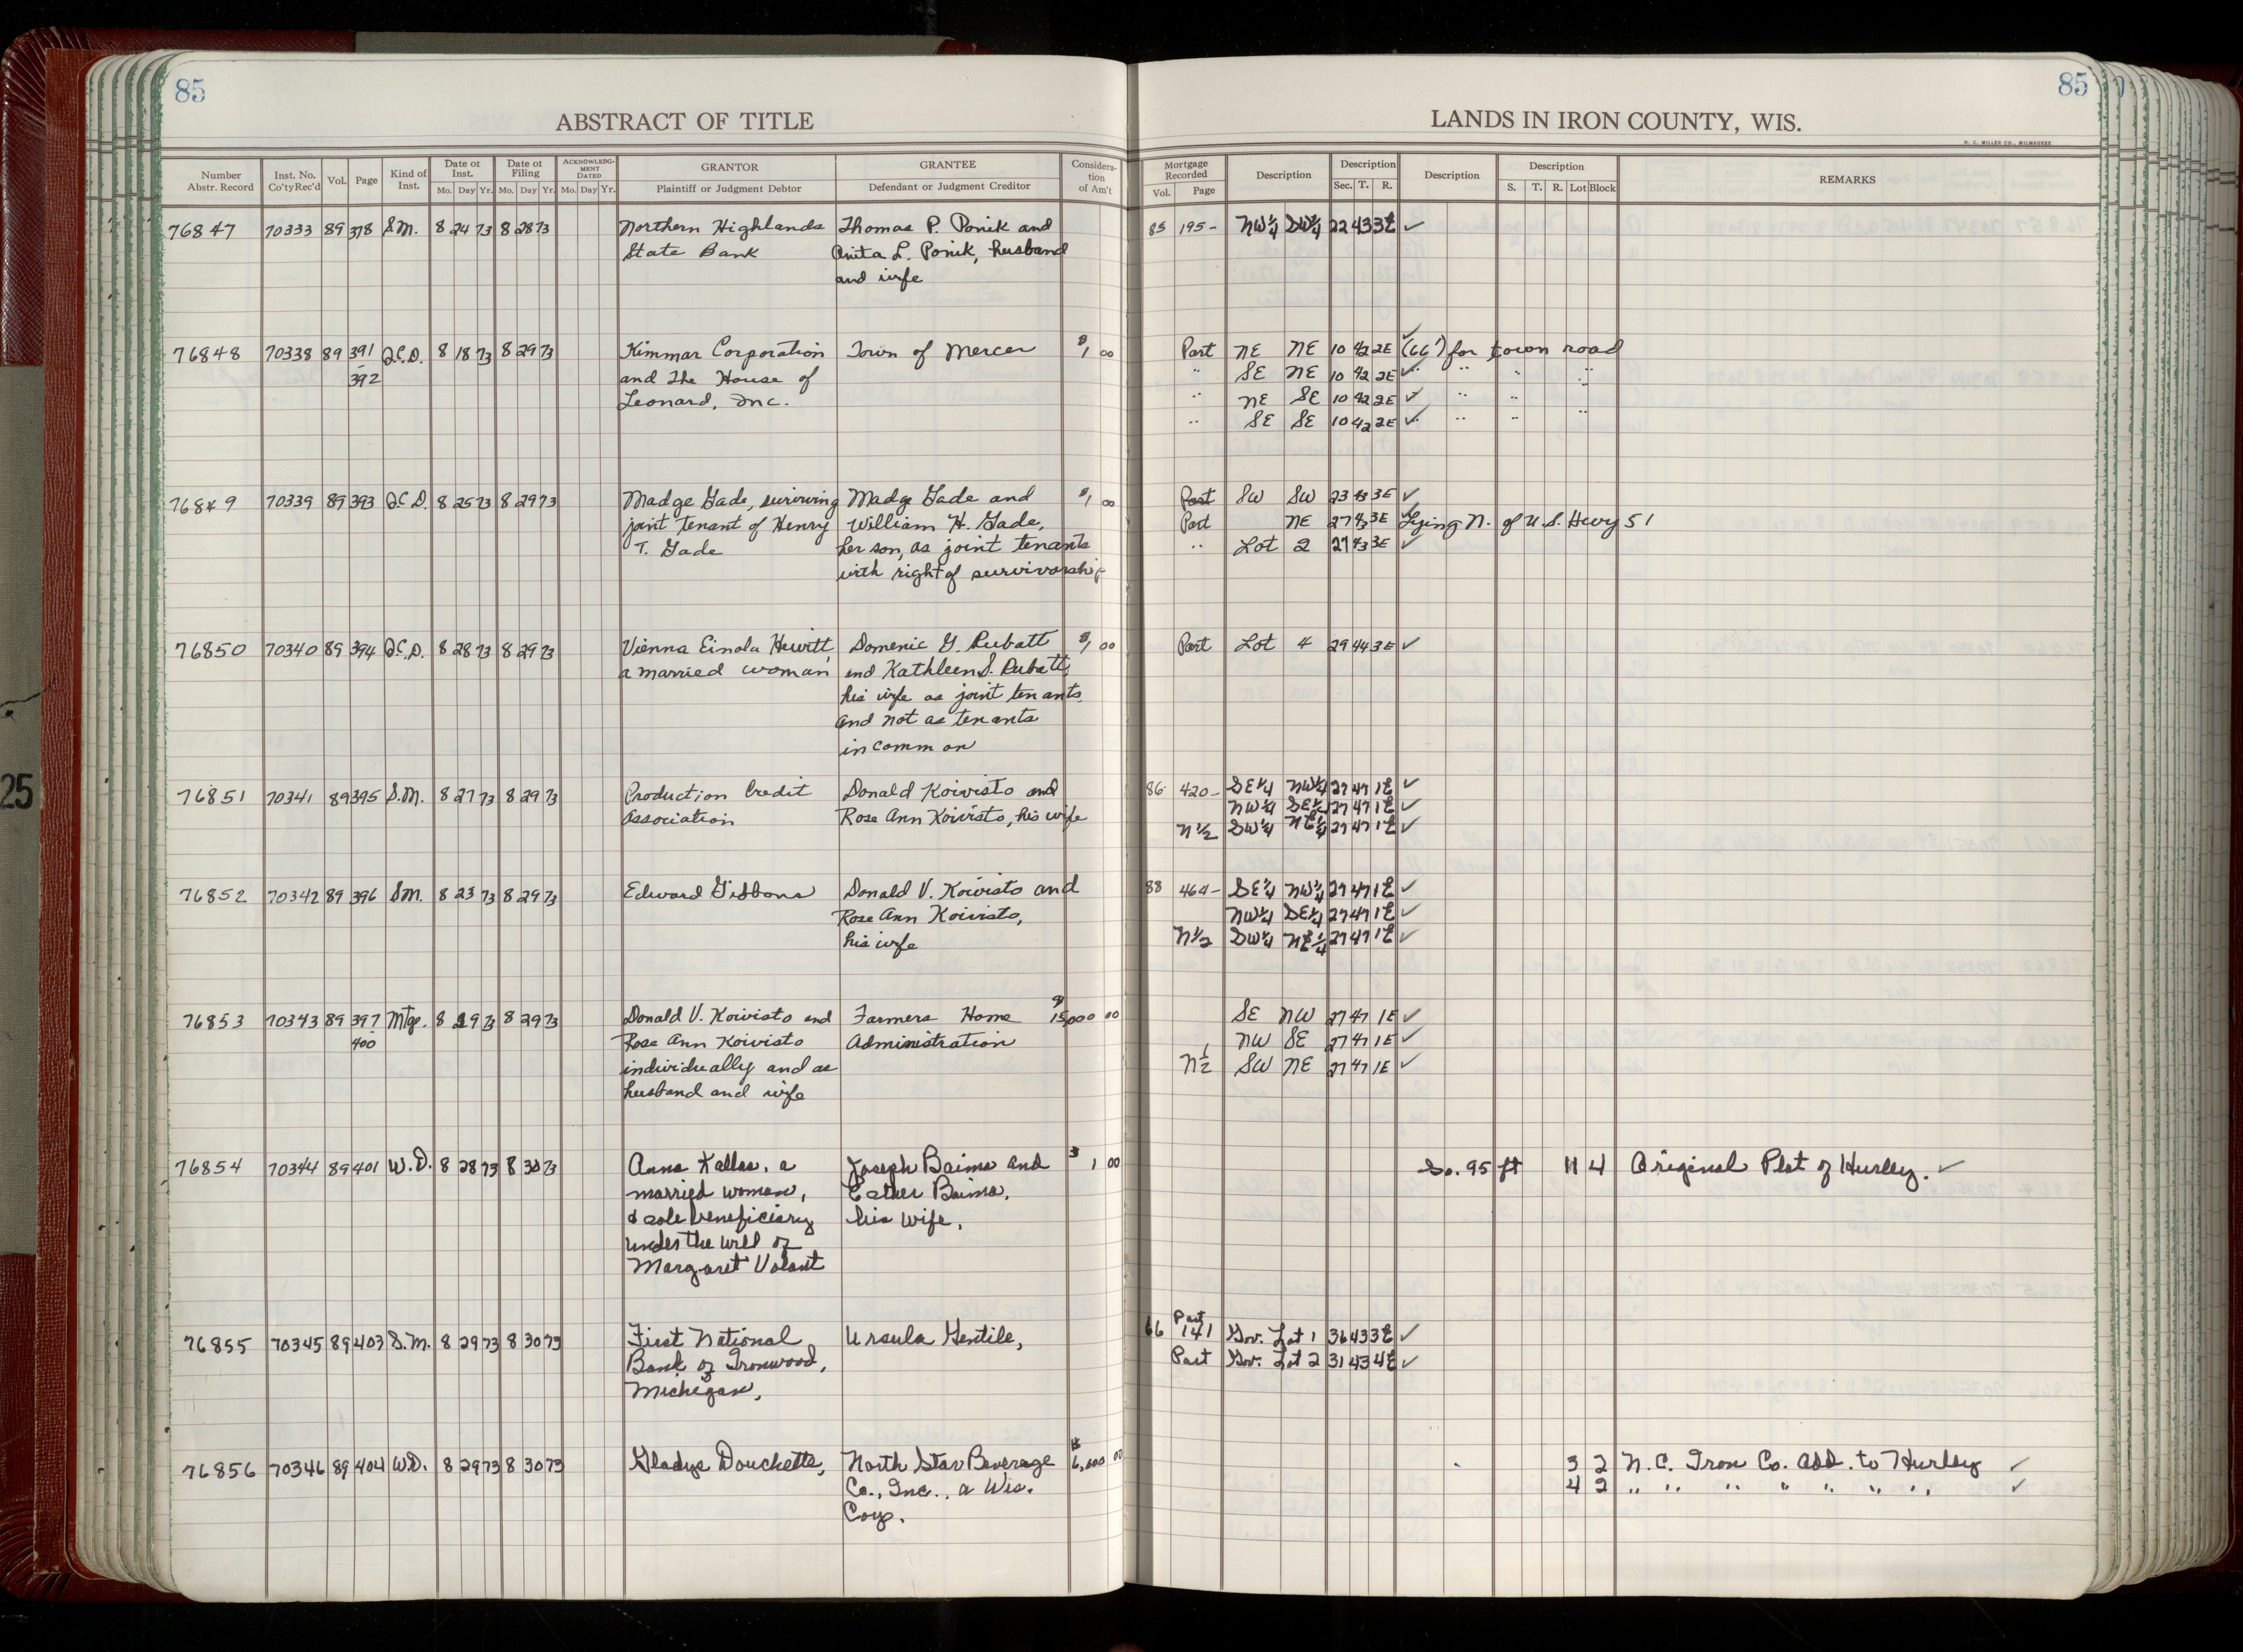 85
85
ABSTRACT OF TITLE
LANDS IN IRON COUNTY, WIS.
H. C. MILLER CO., MILWAUKEE
Number Abstr. Record | Inst. No. Co'ty Rec'd | Vol. | Page | Kind of Inst. | Date of Inst. Mo. Day Yr. | Date of Filing Mo. Day Yr. | ACKNOWLEDGMENT DATED Mo. Day Yr. | GRANTOR Plaintiff or Judgment Debtor | GRANTEE Defendant or Judgment Creditor | Consideration of Am't | Mortgage Recorded Vol. Page | Description | Description Sec. T. R. | Description | Description S. T. R. Lot Block | REMARKS
76847 70333 89 378 S.M. 8 24 73 8 28 73 Northern Highlands Thomas P. Ponik and 85 195- NW¼ SW¼ 22 43 3E ✓
State Bank Anita L. Ponik, husband
and wife
76848 70338 89 391 Q.C.D. 8 18 73 8 29 73 Kimmar Corporation Town of Mercer $1 00 Part NE NE 10 42 2E ✓ (66') for town road
-392 and The House of " SE NE 10 42 2E ✓ " " "
Leonard, Inc. " NE SE 10 42 2E ✓ " "
" SE SE 10 42 2E ✓ " " "
76849 70339 89 393 Q.C.D. 8 25 73 8 29 73 Madge Gade, surviving Madge Gade and $1 00 Part SW SW 23 43 3E ✓
joint tenant of Henry William H. Gade, Part NE 27 43 3E ✓ Lying N. of U.S. Hwy 51
T. Gade her son, as joint tenants " Lot 2 27 43 3E ✓
with right of survivorship
76850 70340 89 394 Q.C.D. 8 28 73 8 29 73 Vienna Einola Hewitt, Domenic G. Rubatt $1 00 Part Lot 4 29 44 3E ✓
a married woman and Kathleen S. Rubatt,
his wife as joint tenants
and not as tenants
in common
76851 70341 89 395 S.M. 8 27 73 8 29 73 Production Credit Donald Koivisto and 86 420- SE¼ NW¼ 27 47 1E ✓
Association Rose Ann Koivisto, his wife NW¼ SE¼ 27 47 1E ✓
N½ SW¼ NE¼ 27 47 1E ✓
76852 70342 89 396 SM. 8 23 73 8 29 73 Edward Gibbons Donald V. Koivisto and 88 464- SE¼ NW¼ 27 47 1E ✓
Rose Ann Koivisto, NW¼ SE¼ 27 47 1E ✓
his wife N½ SW¼ NE¼ 27 47 1E ✓
76853 70343 89 397 Mtge. 8 29 73 8 29 73 Donald V. Koivisto and Farmers Home $15,000 00 SE NW 27 47 1E ✓
-400 Rose Ann Koivisto Administration NW SE 27 47 1E ✓
individually and as N½ SW NE 27 47 1E ✓
husband and wife
76854 70344 89 401 W.D. 8 28 73 8 30 73 Anna Kallas, a Joseph Baima and $1 00 So. 95 ft 11 4 Original Plat of Hurley. ✓
married woman, Esther Baima,
& sole beneficiary his wife,
under the will of
Margaret Valant
76855 70345 89 403 S.M. 8 29 73 8 30 73 First National Ursula Gentile, 66 141 Part Gov. Lot 1 36 43 3E ✓
Bank of Ironwood, Part Gov. Lot 2 31 43 4E ✓
Michigan,
76856 70346 89 404 W.D. 8 29 73 8 30 73 Gladys Douchette, North Star Beverage $6,000 00 3 2 N.C. Iron Co. Add. to Hurley ✓
Co., Inc., a Wis. 4 2 " " " " " " " ✓
Corp.
25